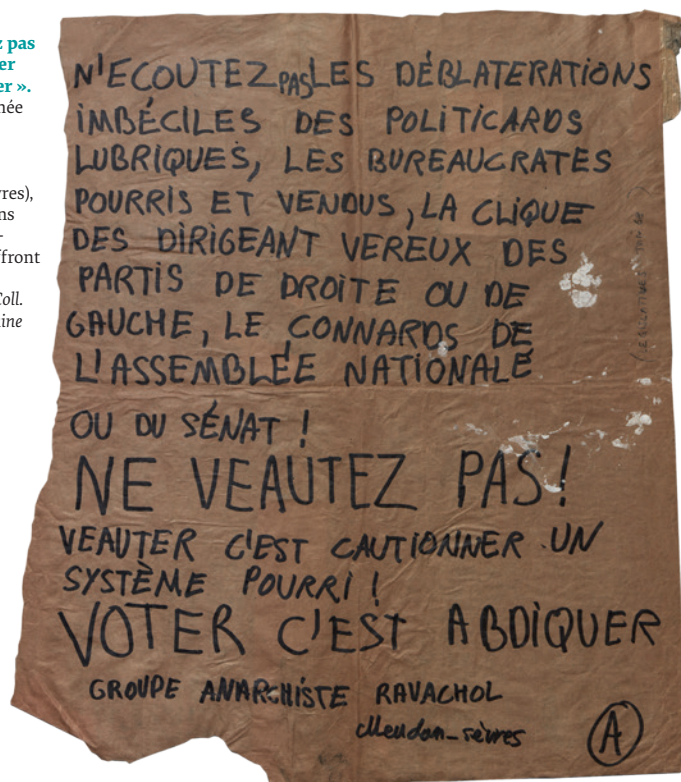 z pas
er
er ».
née
res),
ns
-
ffront
Coll.
ine
N'ECOUTEZ PAS LES DÉBLATERATIONS
IMBÉCILES DES POLITICARDS
LUBRIQUES, LES BUREAUCRATES
POURRIS ET VENDUS, LA CLIQUE
DES DIRIGEANT VEREUX DES
PARTIS DE DROITE OU DE
GAUCHE, LE CONNARDS DE
L'ASSEMBLÉE NATIONALE
OU DU SÉNAT !
NE VEAUTEZ PAS !
VEAUTER C'EST CAUTIONNER UN
SYSTÈME POURRI !
VOTER C'EST ABDIQUER
GROUPE ANARCHISTE RAVACHOL
Meudon-sèvres
A